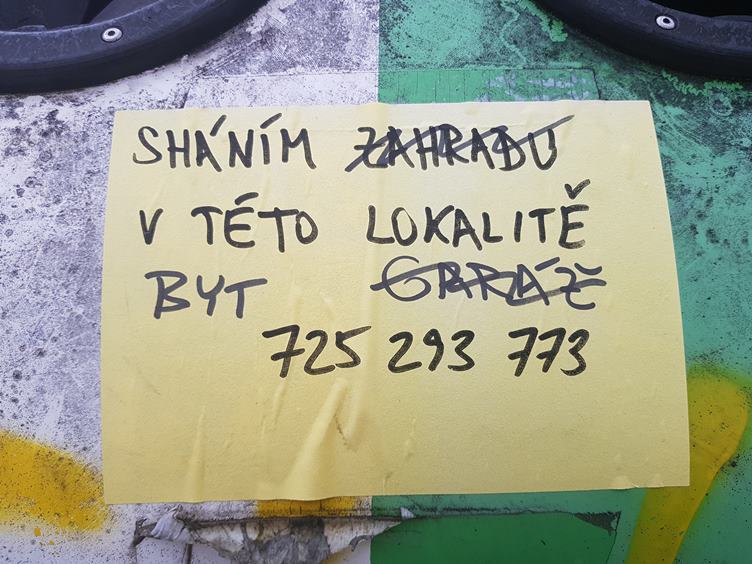 SHÁNÍM ZAHRADU
V TÉTO LOKALITĚ
BYT GARÁŽ
725 293 773